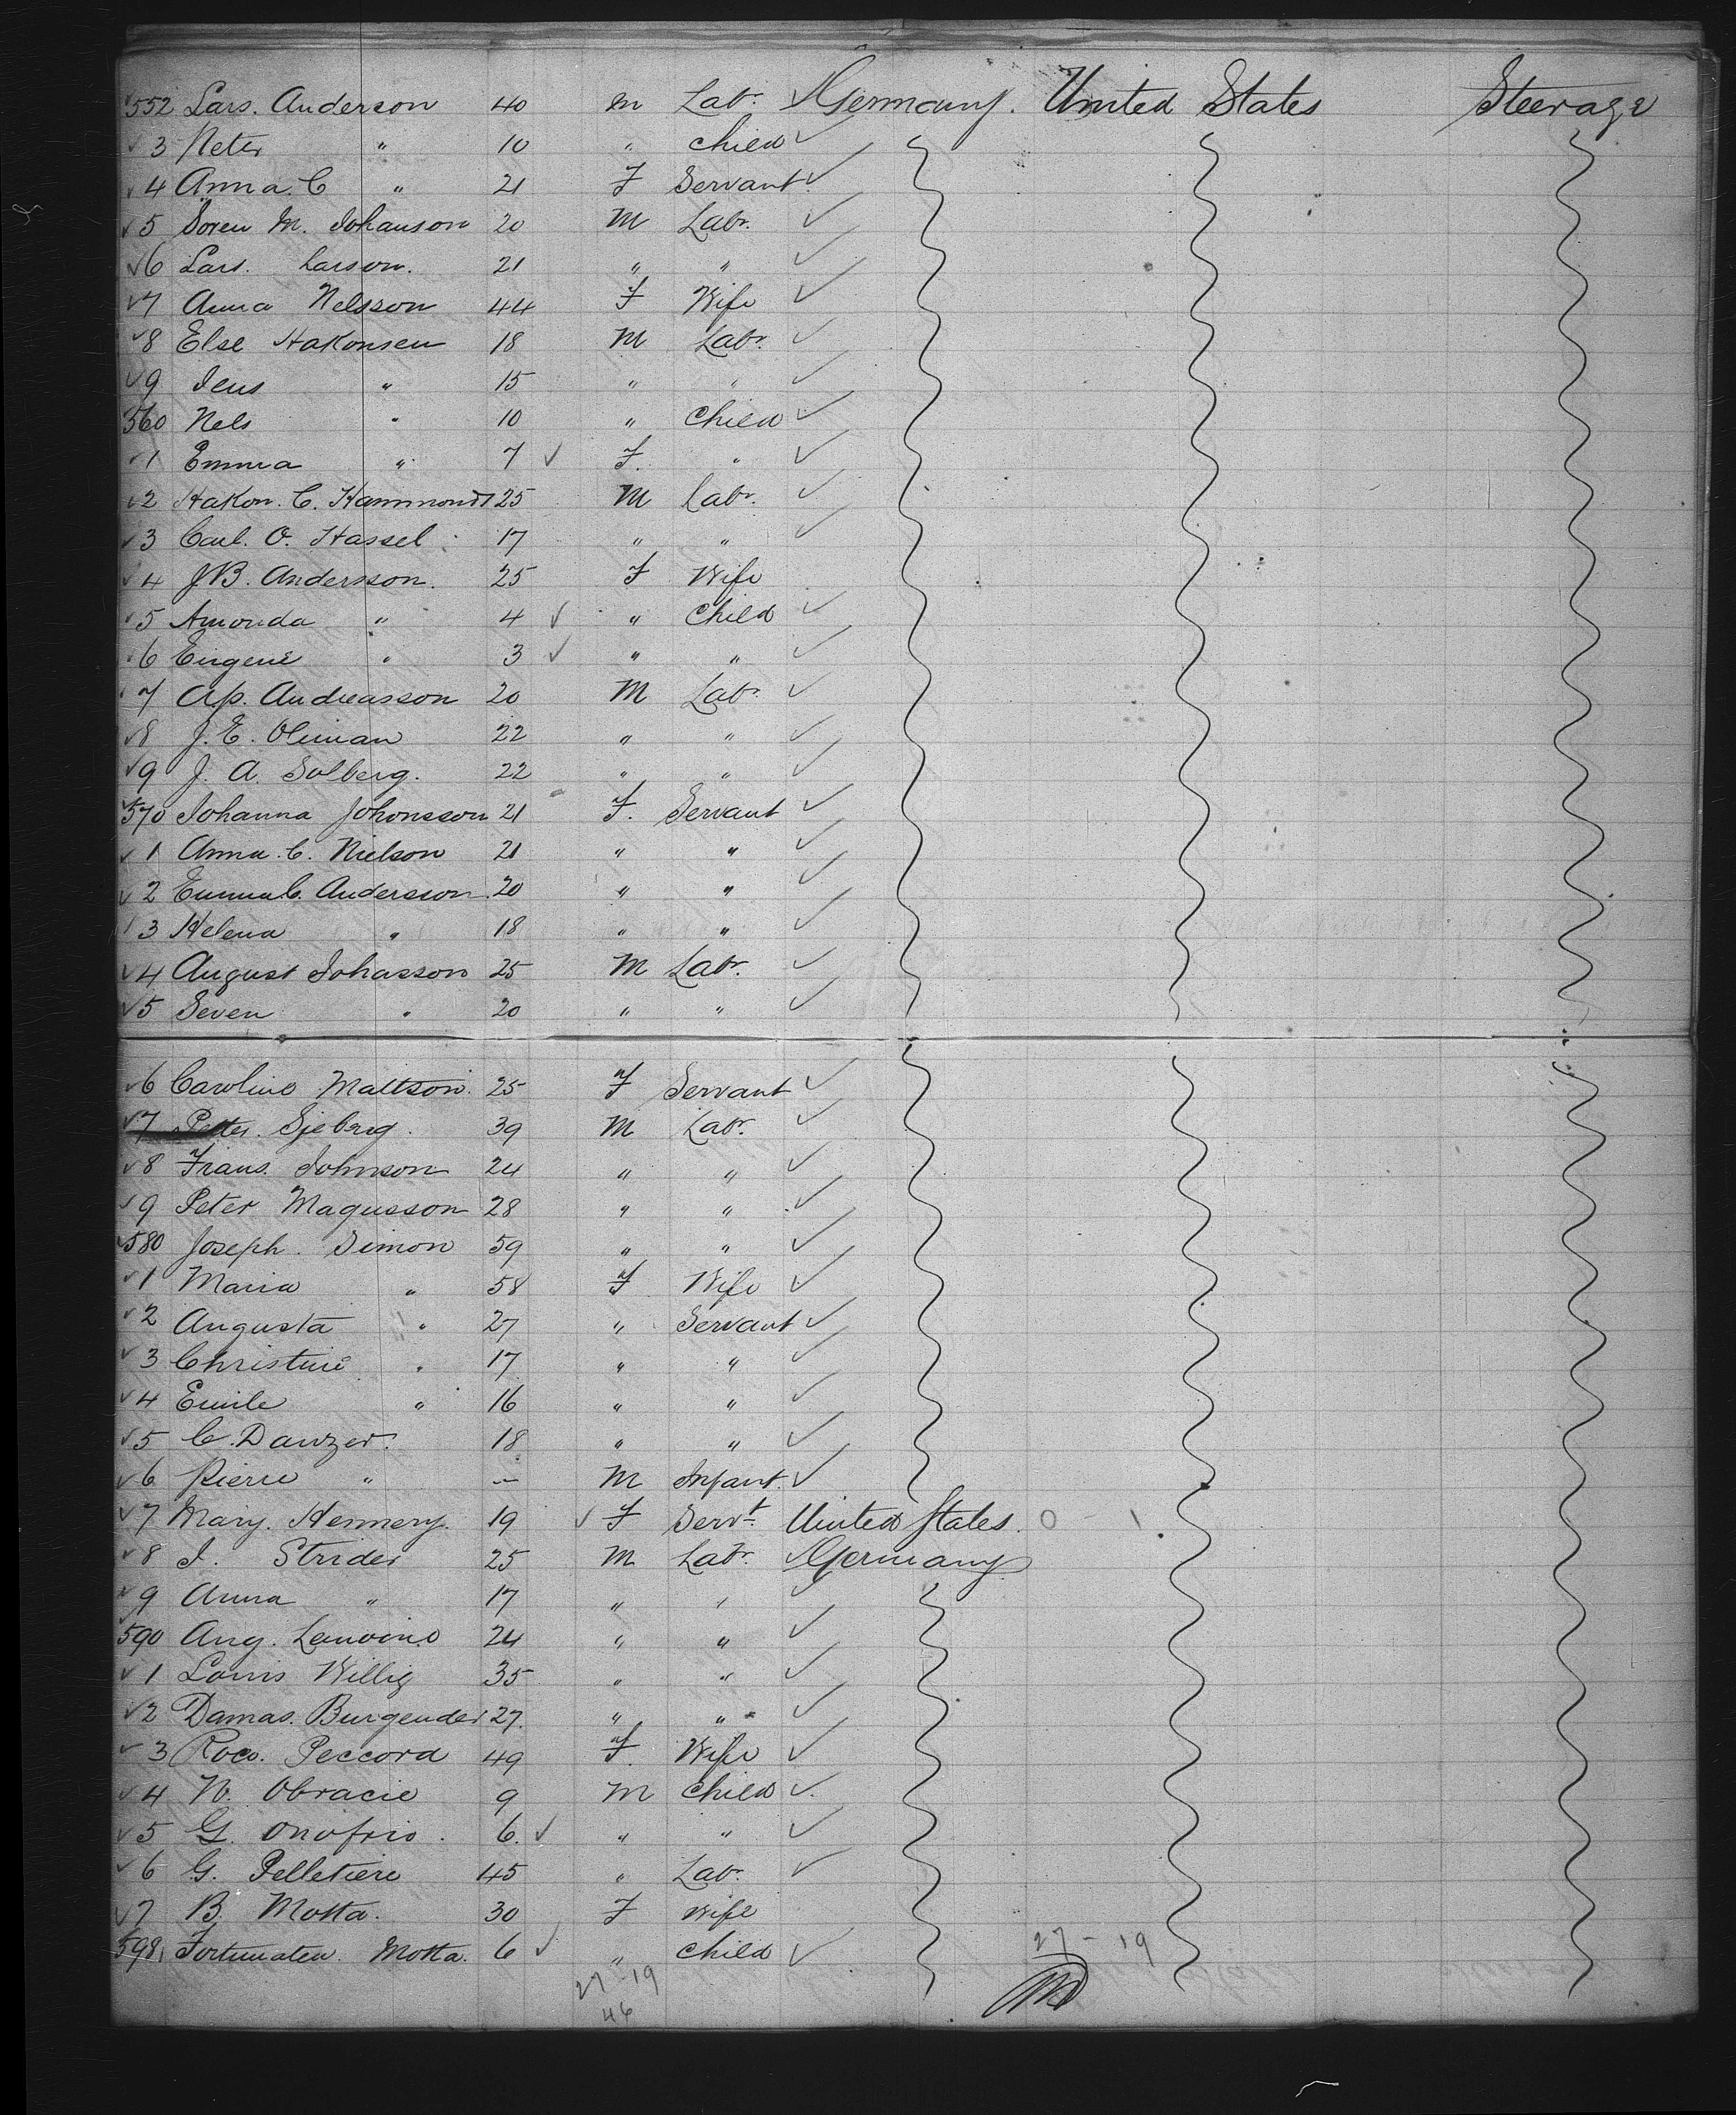 552 Lars. Anderson 40 m Labr. Germany. United States Steerage
3 Peter " 10 " Child
4 Anna C " 21 F Servant
5 Soren M. Johanson 20 M Labr.
6 Lars. Larson. 21 " "
7 Anna Nelsson 44 F Wife
8 Else Hakonsen 18 M Labr.
9 Jens " 15 " "
560 Nels " 10 " Child
1 Emma " 7 F. "
2 Hakon. C. Hammond 25 M Labr.
3 Carl. O. Hassel 17 " "
4 J B. Andersson. 25 F Wife
5 Amonda " 4 " Child
6 Eugene " 3 " "
7 Ap. Andreasson 20 M Labr.
8 J. E. Oliman 22 " "
9 J. A. Solberg. 22 " "
570 Johanna Johonsson 21 F. Servant
1 Anna. C. Nielson 21 " "
2 Emma C. Andersson. 20 " "
3 Helena " 18 " "
4 August Johasson 25 M Labr.
5 Seven " 20 " "
6 Caroline Mattson. 25 F Servant
7 Peter. Sjebrg. 39 M Labr.
8 Frans. Johnson 24 " "
9 Peter Magusson 28 " "
580 Joseph. Simon 59 " "
1 Maria " 58 F Wife
2 Augusta " 27 " Servant
3 Christine " 17 " "
4 Emile " 16 " "
5 C. Danzer. 18 " "
6 Pierre " – M Infant.
7 Mary. Hennery. 19 F Servt. United States. 0 - 1
8 J. Strider 25 M Labr. Germany
9 Anna " 17 " "
590 Aug. 24 " "
1 Louis Willig 35 " "
2 Damas. Burgender 27. " "
3 Roco. Peccora 49 F. Wife
4 N. Obracie 9 M Child
5 G. Onofrio. 6. " "
6 G. Pelletiere 45 " Labr.
7 B. Motta. 30 F Wife
598 Fortunaten. Motta. 6 " Child 27 - 19
27 - 19
46